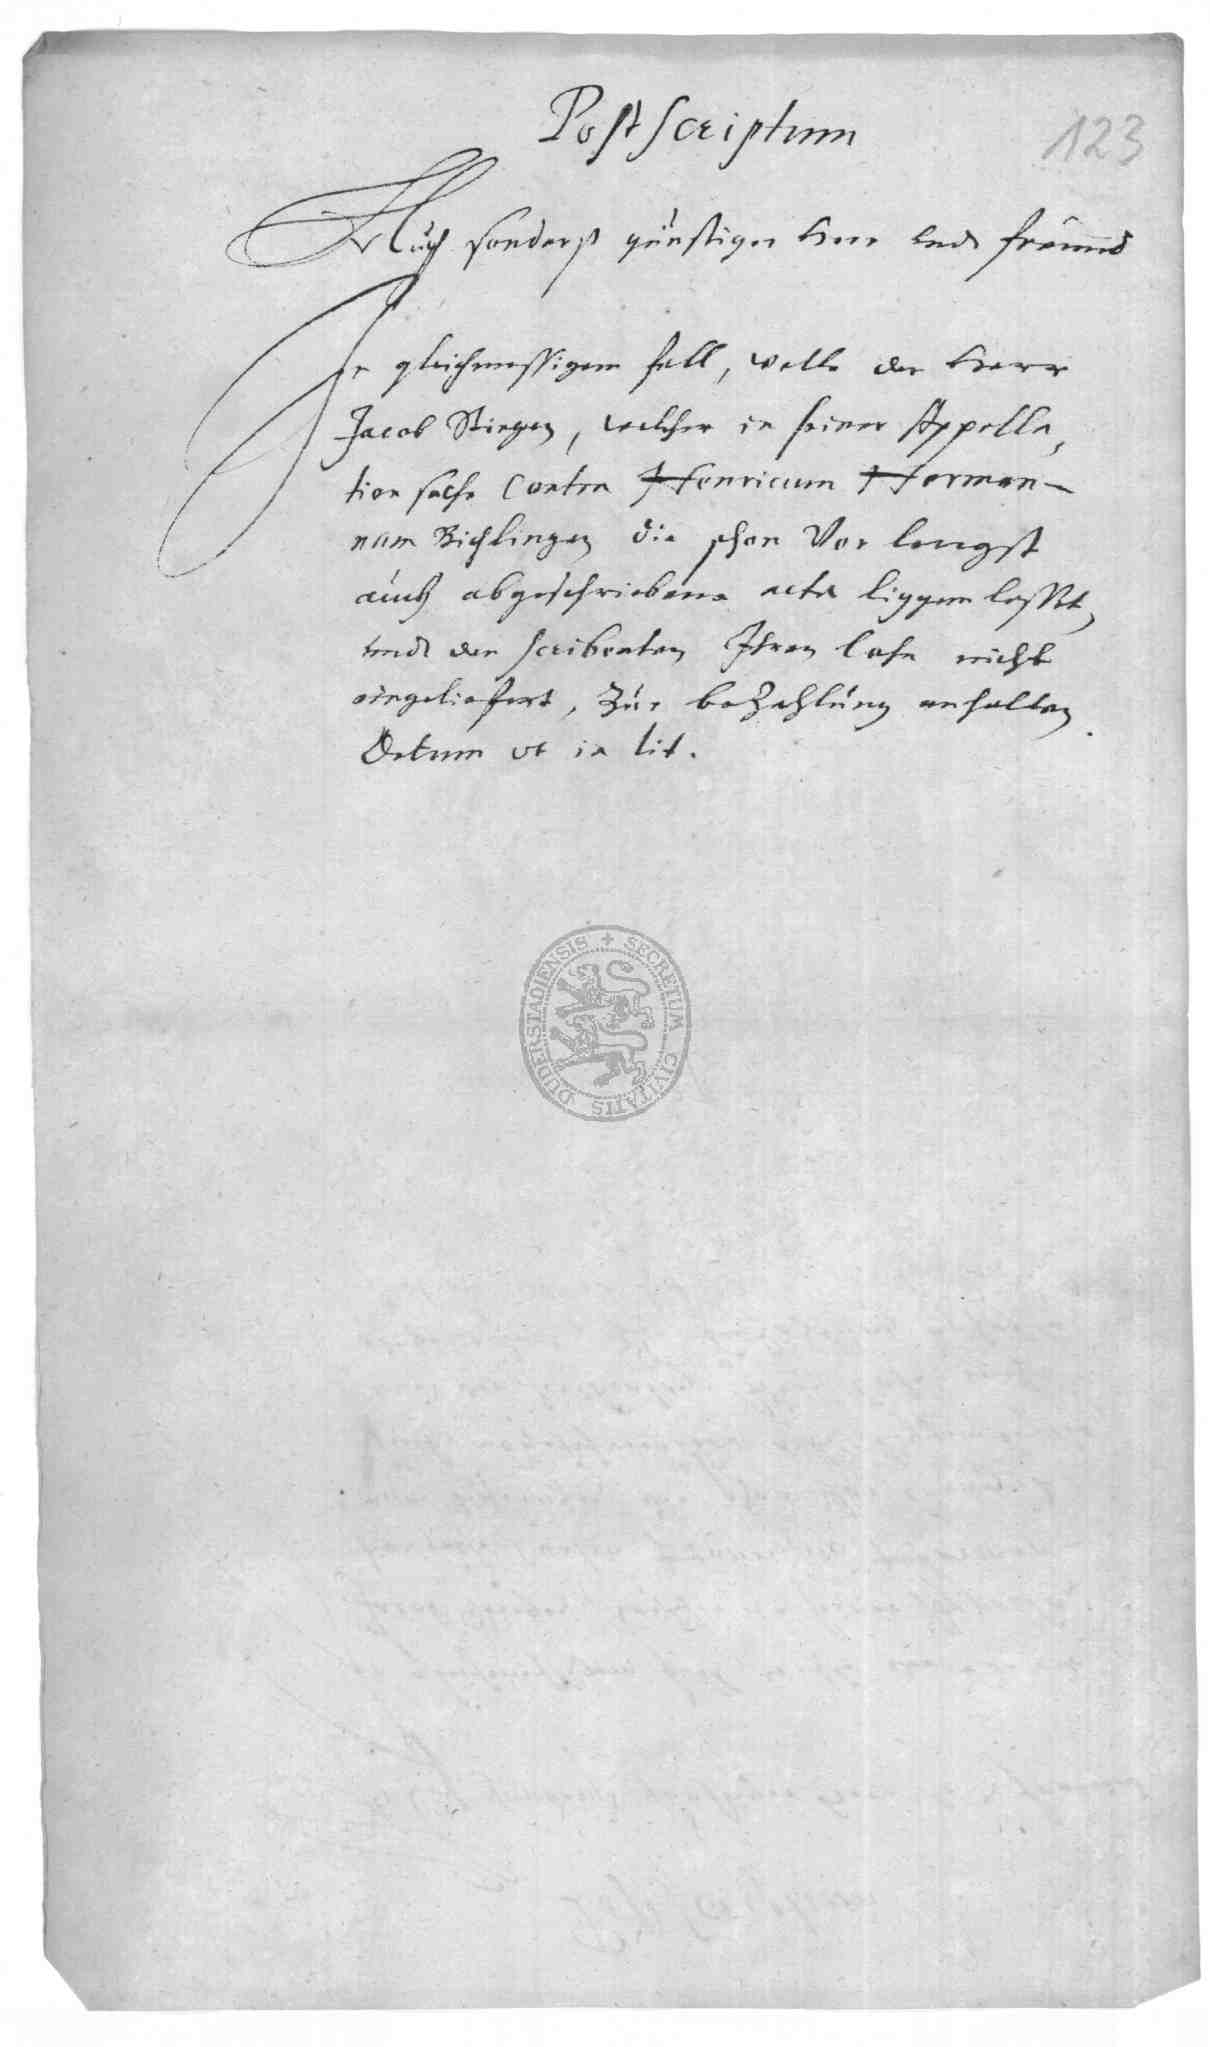 Postscriptum
123
Auch sonderß günstiger Herr undt freundt
In gleichmessigem fall, wolle der Herr
Jacob Stingen, welcher in seiner Appella,
tion sache Contra Henricum Herman-
num Richlingen die schon Vor lengst
auch abgeschriebene acta liggen lesset,
undt den scribenten Ihren lohn nicht
eingeliefert, Zur bezahlung anhalten.
Datum ut in lit.
SECRETUM CIVITATIS DUDERSTADIENSIS